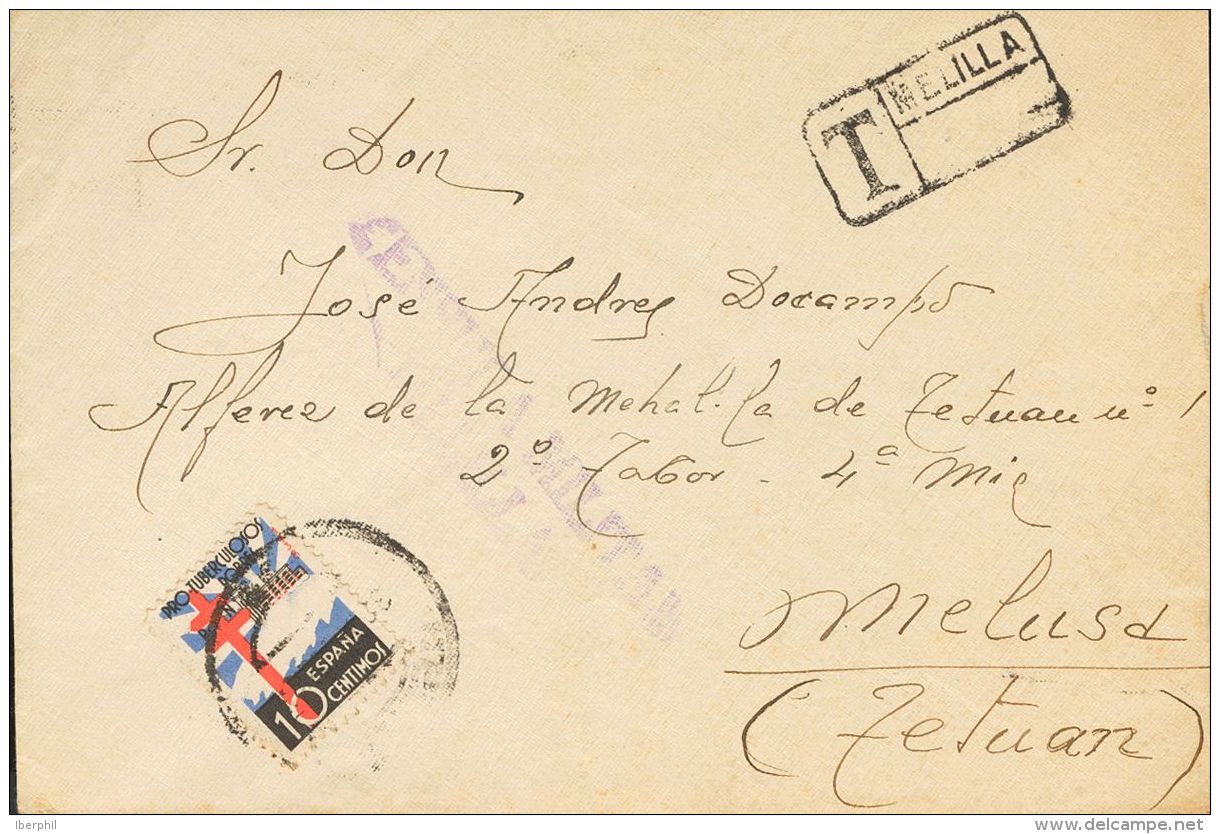 MELILLA
T
Sr. Don
José Andres Docampo
Alferez de la Mehal.la de Tetuan nº 1
2º Tabor - 4ª Mia
Melusa
(Tetuan)
CENSURA MILITAR
MELILLA
PRO-TUBERCULOSOS
POBRES
ESPAÑA
10 CENTIMOS
Iberphil
delcampe.net